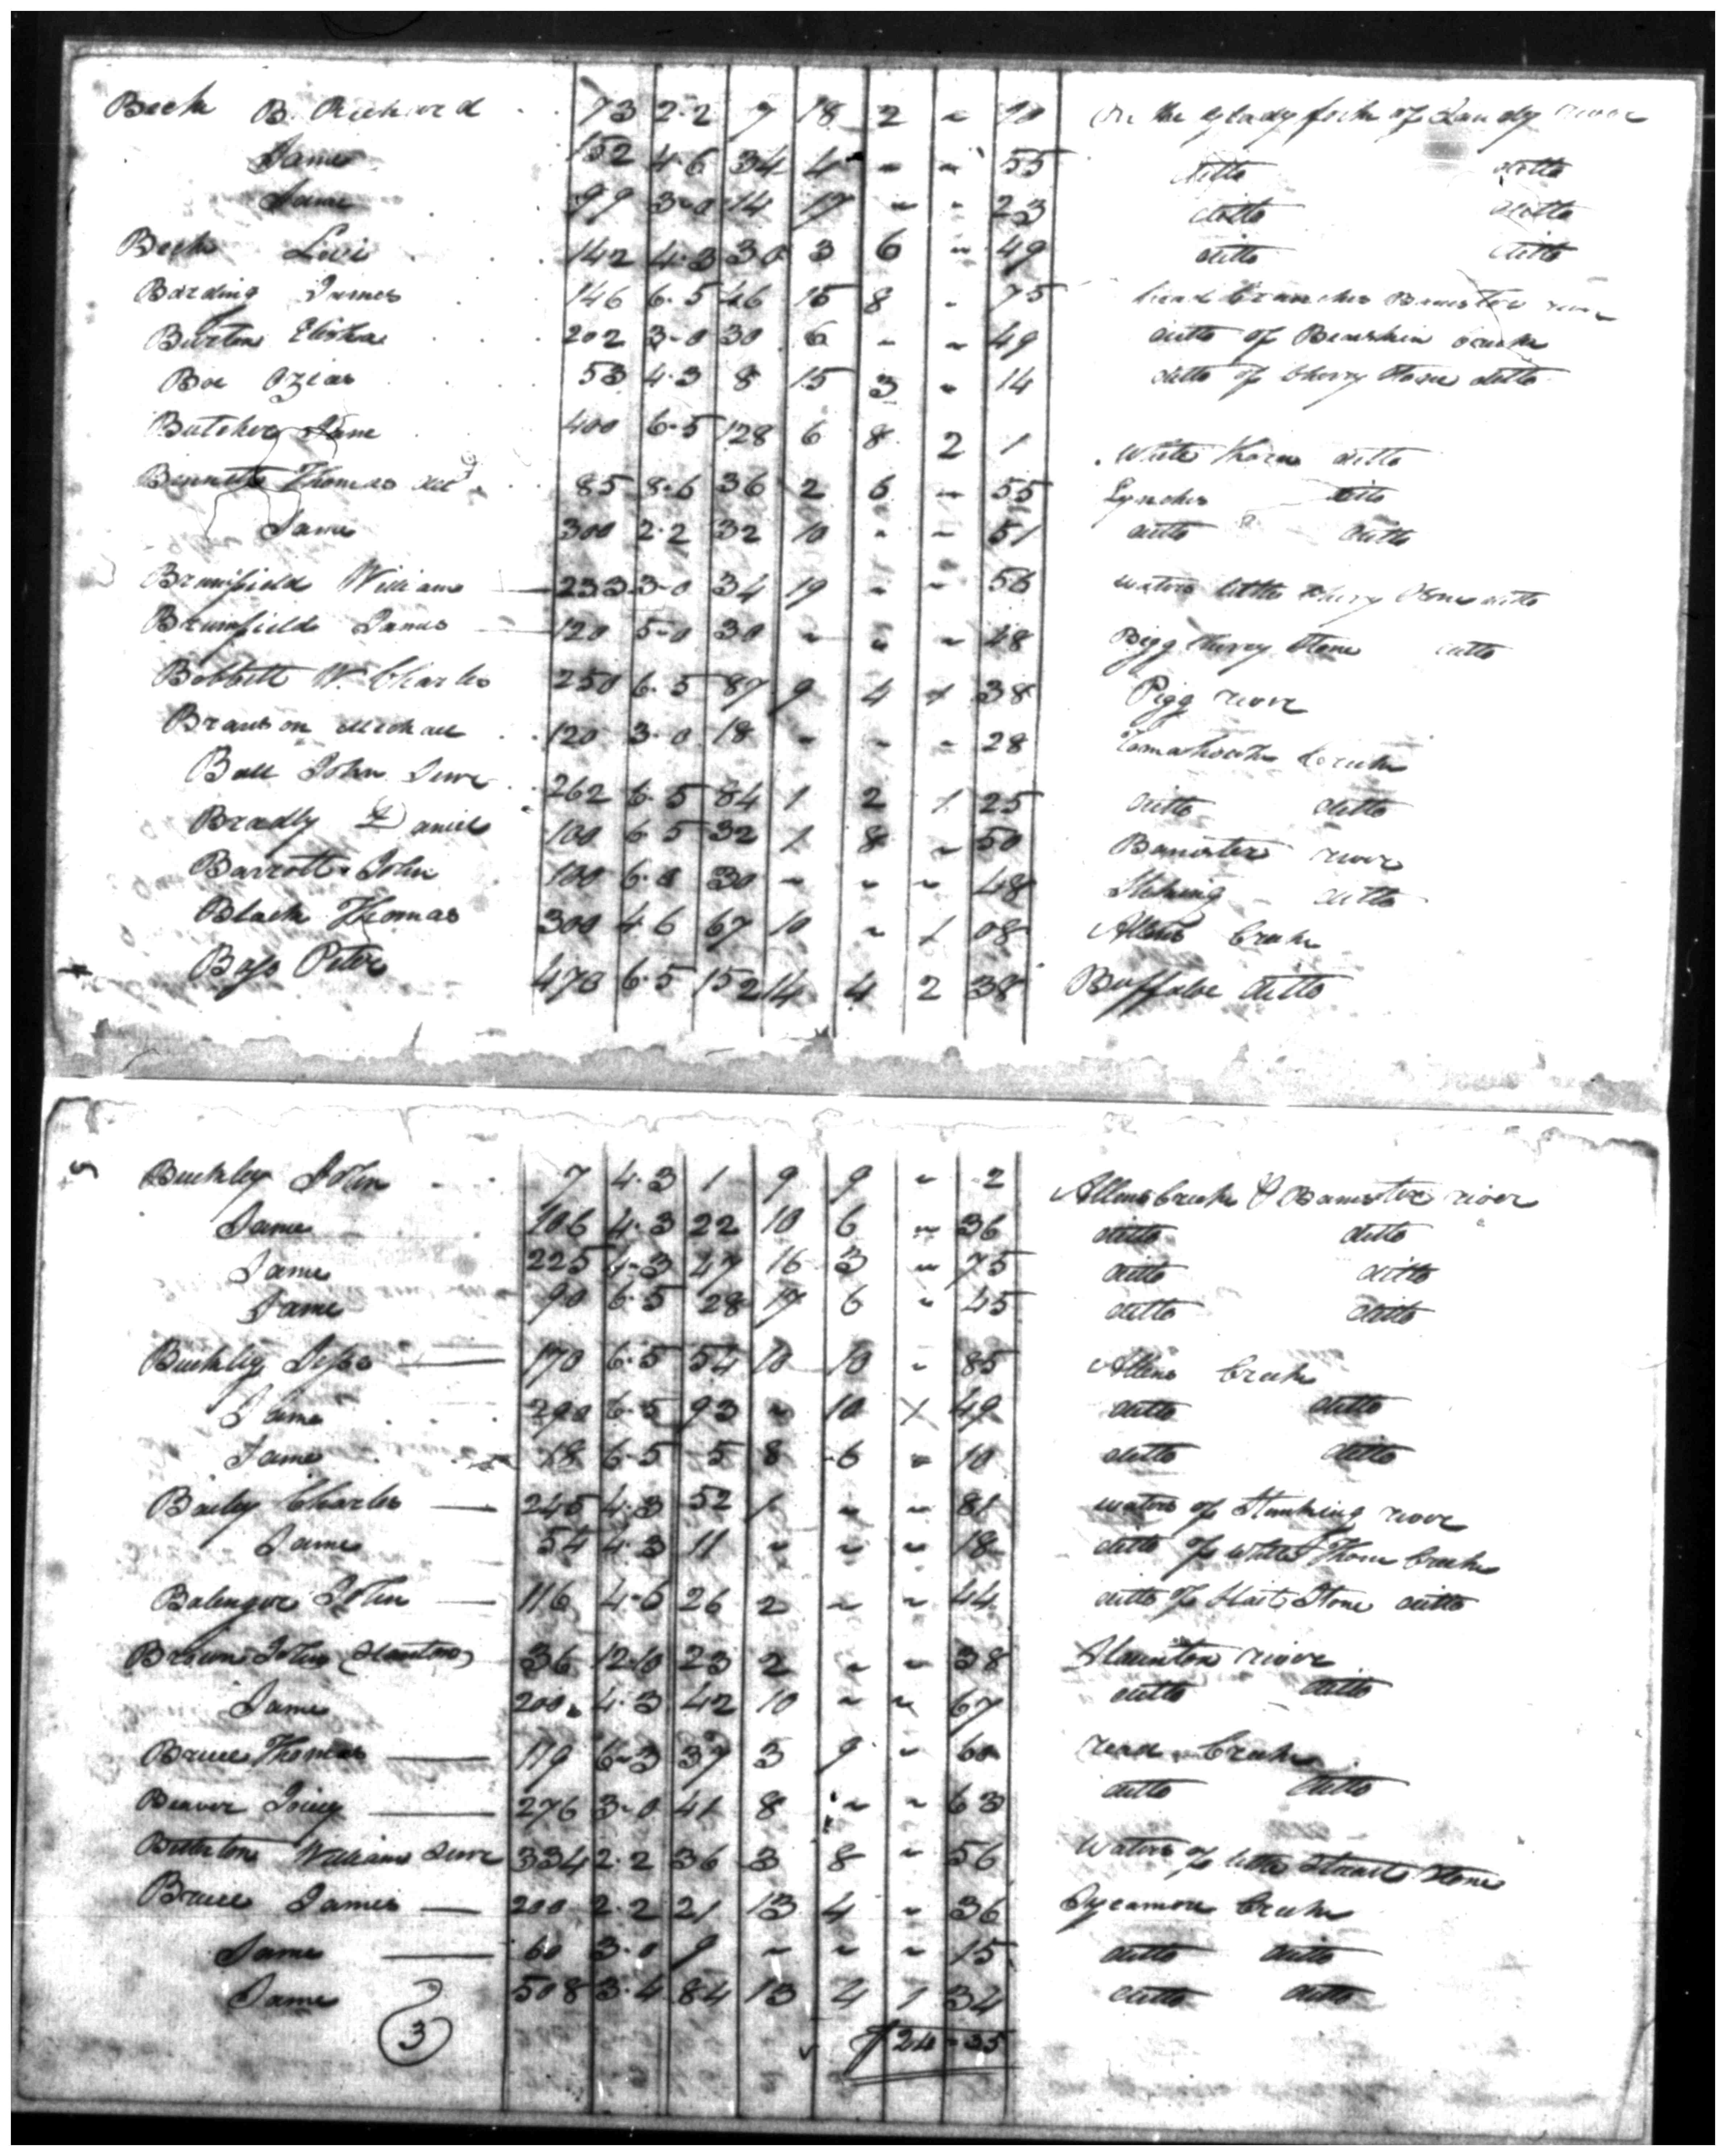 Beck B. Richard 73 2.2 7 18 2 ~ 10 On the glady fork of Sandy river
Same 152 4.6 34 4 ~ ~ 55 ditto ditto
Same 99 3-0 14 17 ~ ~ 23 ditto ditto
Beck Levi 142 4.3 30 3 6 ~ 49 ditto ditto
Barding James 146 6.5 46 15 8 ~ 75 head branches Banister river
Burton Elisha 202 3-0 30 6 ~ ~ 49 ditto of Bearskin creek
Boe Ozias 53 4.3 8 15 3 ~ 14 ditto of Cherry Stone ditto
Butcher Jane 400 6.5 128 6 8 2 1 White thorn ditto
Bennett Thomas decd 85 8.6 36 2 6 ~ 55 Lynches ditto
Same 300 2.2 32 10 ~ ~ 51 ditto ditto
Brumfield William 233 3-0 34 19 ~ ~ 56 waters little Cherry Stone ditto
Brumfield James 120 5-0 30 ~ ~ ~ 48 Bigg Cherry Stone ditto
Bobbett W. Charles 250 6.5 87 9 4 1 38 Pigg river
Branson Michael 120 3.0 18 ~ ~ ~ 28 Tomahawk Creek
Ball John Senr 262 6.5 84 1 2 1 25 ditto ditto
Bradly Daniel 100 6 5 32 1 8 ~ 50 Banister river
Barrott John 100 6.0 30 ~ ~ ~ 48 ditto
Black Thomas 300 4 6 67 10 ~ 1 08 Allens Creek
Bass Peter 470 6.5 152 14 4 2 38 Buffaloe ditto
Buckley John 7 4.3 1 9 9 ~ 2 Allens Creek & Banister river
Same 106 4.3 22 10 6 ~ 36 ditto ditto
Same 225 4-3 47 16 3 ~ 75 ditto ditto
Same 90 6.5 28 17 6 ~ 45 ditto ditto
Buckley 170 6.5 54 10 10 ~ 85 Allens Creek
Same 290 6.5 93 ~ 10 1 49 ditto ditto
Same 18 6.5 5 8 6 ~ 10 ditto ditto
Bailey Charles 245 4.3 52 1 ~ ~ 81 waters of river
Same 54 4.3 11 ~ ~ ~ 18 ditto of White Thorn Creek
Balenger John 116 4-6 26 2 ~ ~ 44 ditto of Stone ditto
Brown John (Stanton) 36 12.10 23 2 ~ ~ 38 Staunton river
Same 200 4.3 42 10 ~ ~ 67 ditto ditto
Bruce Thomas 119 6-3 37 3 9 ~ 60 read Creek
Beaver 276 3-0 41 8 ~ ~ 63 ditto ditto
William Senr 334 2.2 36 3 8 ~ 56 Waters of little Stone
Bruce James 200 2.2 21 13 4 ~ 36 Sycamore Creek
Same 60 3.0 9 ~ ~ ~ 15 ditto ditto
Same 508 3.4 84 13 4 1 34 ditto ditto
3
24-35